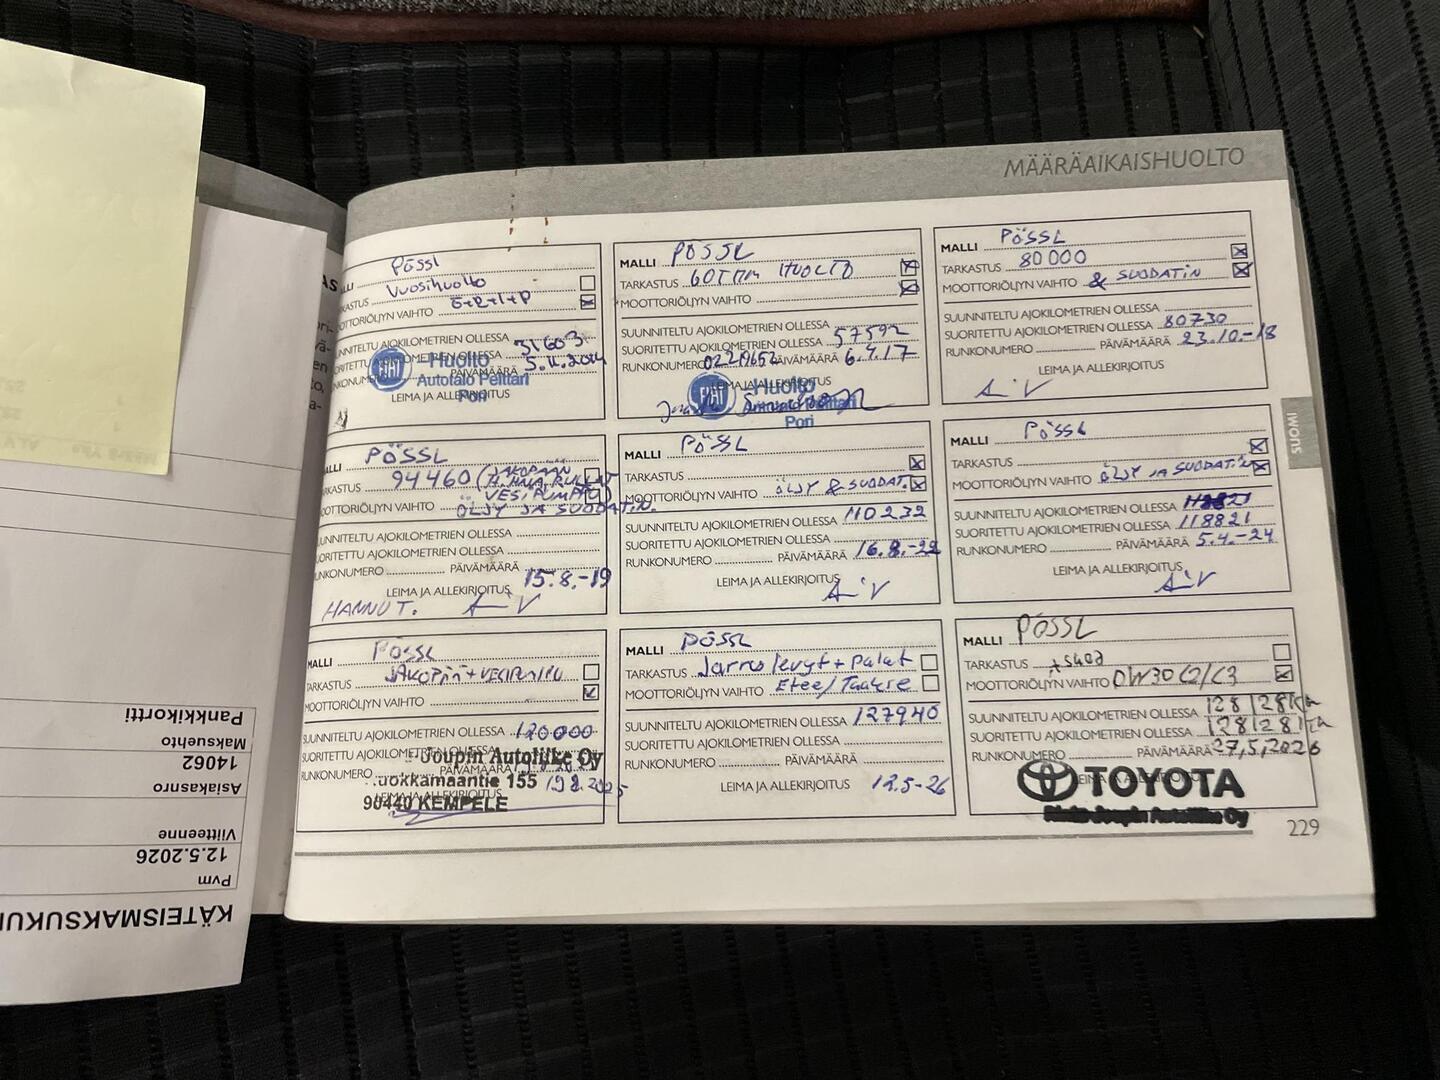 MÄÄRÄAIKAISHUOLTO
Pössl
TARKASTUS Vuosihuolto
MOOTTORIÖLJYN VAIHTO
SUUNNITELTU AJOKILOMETRIEN OLLESSA 31603
SUORITETTU AJOKILOMETRIEN OLLESSA
PÄIVÄMÄÄRÄ 5.11.2014
LEIMA JA ALLEKIRJOITUS
-Huolto
Autotalo Pelttari
Pori
MALLI PÖSSL
TARKASTUS 60TKM HUOLTO
MOOTTORIÖLJYN VAIHTO
SUUNNITELTU AJOKILOMETRIEN OLLESSA
SUORITETTU AJOKILOMETRIEN OLLESSA 57592
RUNKONUMERO PÄIVÄMÄÄRÄ 6.4.17
LEIMA JA ALLEKIRJOITUS
-Huolto
Autotalo Pelttari
Pori
MALLI PÖSSL
TARKASTUS 80000
MOOTTORIÖLJYN VAIHTO & SUODATIN
SUUNNITELTU AJOKILOMETRIEN OLLESSA
SUORITETTU AJOKILOMETRIEN OLLESSA 80730
RUNKONUMERO PÄIVÄMÄÄRÄ 23.10.-18
LEIMA JA ALLEKIRJOITUS
SUOMI
MALLI PÖSSL
TARKASTUS 94460 (JAKOPÄÄN
VESIPUMPPU)
MOOTTORIÖLJYN VAIHTO ÖLJY JA SUODATIN.
SUUNNITELTU AJOKILOMETRIEN OLLESSA
SUORITETTU AJOKILOMETRIEN OLLESSA
RUNKONUMERO PÄIVÄMÄÄRÄ 15.8.-19
LEIMA JA ALLEKIRJOITUS
HANNU T.
MALLI PÖSSL
TARKASTUS
MOOTTORIÖLJYN VAIHTO ÖLJY & SUODAT.
SUUNNITELTU AJOKILOMETRIEN OLLESSA 110232
SUORITETTU AJOKILOMETRIEN OLLESSA
RUNKONUMERO PÄIVÄMÄÄRÄ 16.8.-22
LEIMA JA ALLEKIRJOITUS
MALLI PÖSSL
TARKASTUS
MOOTTORIÖLJYN VAIHTO ÖLJY JA SUODATIN
SUUNNITELTU AJOKILOMETRIEN OLLESSA
SUORITETTU AJOKILOMETRIEN OLLESSA 118821
RUNKONUMERO PÄIVÄMÄÄRÄ 5.4.-24
LEIMA JA ALLEKIRJOITUS
MALLI PÖSSL
TARKASTUS
MOOTTORIÖLJYN VAIHTO
SUUNNITELTU AJOKILOMETRIEN OLLESSA 120000
SUORITETTU AJOKILOMETRIEN OLLESSA
RUNKONUMERO PÄIVÄMÄÄRÄ
Joupin Autoliike Oy
155
90440 KEMPELE
MALLI PÖSSL
TARKASTUS Jarrulevyt + palat
MOOTTORIÖLJYN VAIHTO Etee/Taakse
SUUNNITELTU AJOKILOMETRIEN OLLESSA 127940
SUORITETTU AJOKILOMETRIEN OLLESSA
RUNKONUMERO PÄIVÄMÄÄRÄ
LEIMA JA ALLEKIRJOITUS 12.5-26
MALLI PÖSSL
TARKASTUS
MOOTTORIÖLJYN VAIHTO 0W30 C2/C3
SUUNNITELTU AJOKILOMETRIEN OLLESSA 128128km
SUORITETTU AJOKILOMETRIEN OLLESSA 128128km
RUNKONUMERO PÄIVÄMÄÄRÄ 27,5,2026
TOYOTA
Joupin Autoliike Oy
229
Pvm
12.5.2026
Viitteenne
Asiakasnro
14062
Maksuehto
Pankkikortti